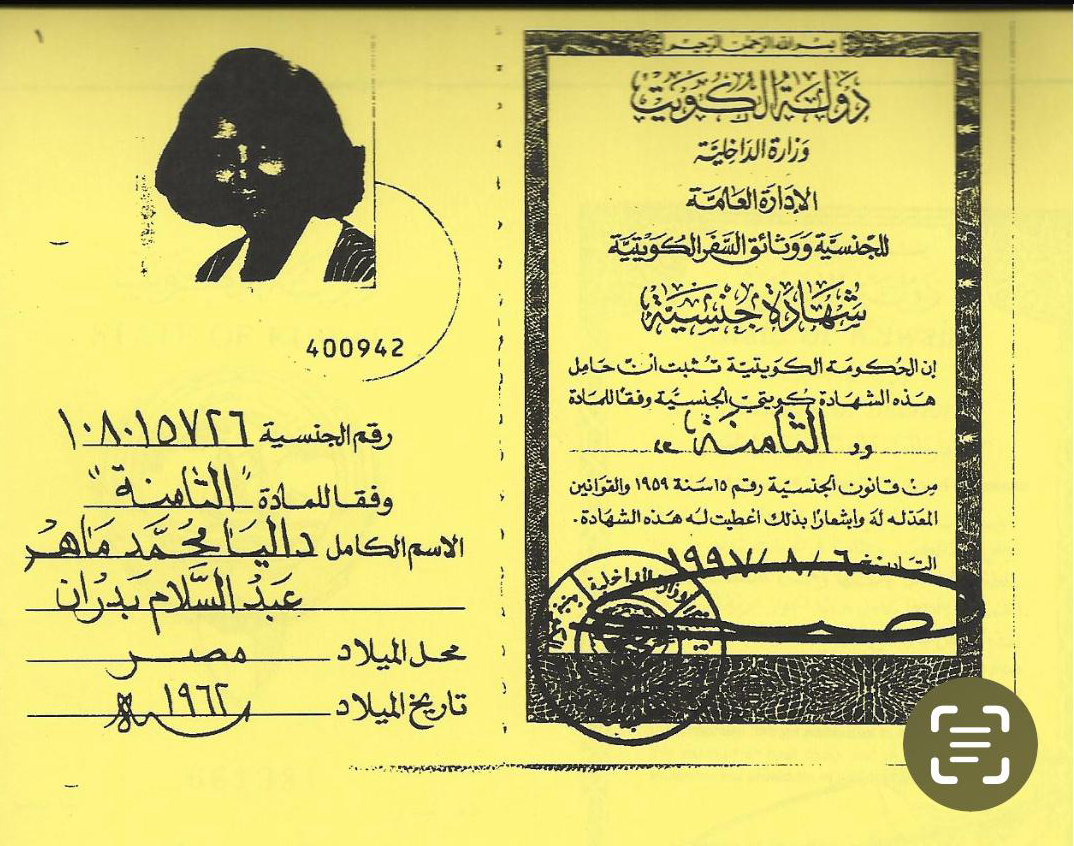 بسم الله الرحمن الرحيم
دولة الكويت
وزارة الداخلية
الإدارة العامة
للجنسية ووثائق السفر الكويتية
شهادة جنسية
إن الحكومة الكويتية تثبت أن حامل
هذه الشهادة كويتي الجنسية وفقا للمادة
" الثامنة "
من قانون الجنسية رقم ١٥ سنة ١٩٥٩ والقوانين
المعدله له وإشعارا بذلك اعطيت له هذه الشهادة.
التاريخ ٦ / ٨ / ١٩٩٧
وزارة الداخلية
١
400942
رقم الجنسية ١٠٨٠١٥٧٢٦
وفقا للمادة "الثامنة"
الاسم الكامل داليا محمد ماهر
عبد السلام بدران
محل الميلاد مصر
تاريخ الميلاد ١٩٦٢